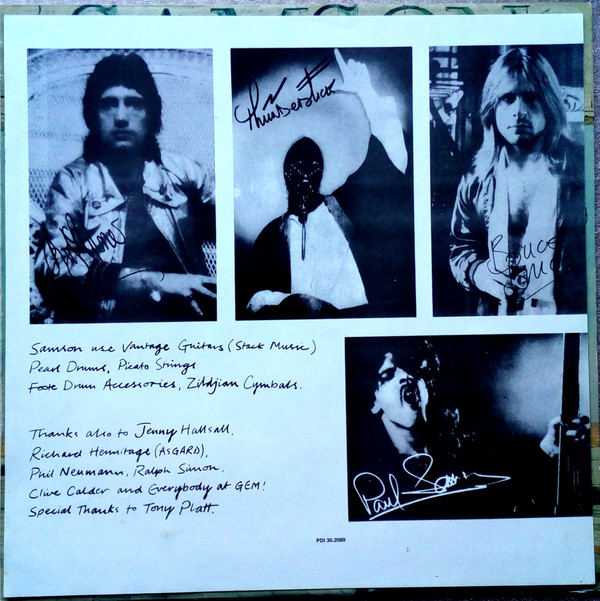 SAMSON
Thunderstick
BRUCE
Paul Samson
Samson use Vantage Guitars (Stack Music)
Pearl Drums, Picato Strings
Foote Drum Accessories, Zildjian Cymbals.
Thanks also to Jenny Hallsall,
Richard Hermitage (ASGARD),
Phil Neumann, Ralph Simon.
Clive Calder and Everybody at GEM!
Special Thanks to Tony Platt.
PDI 30.2089